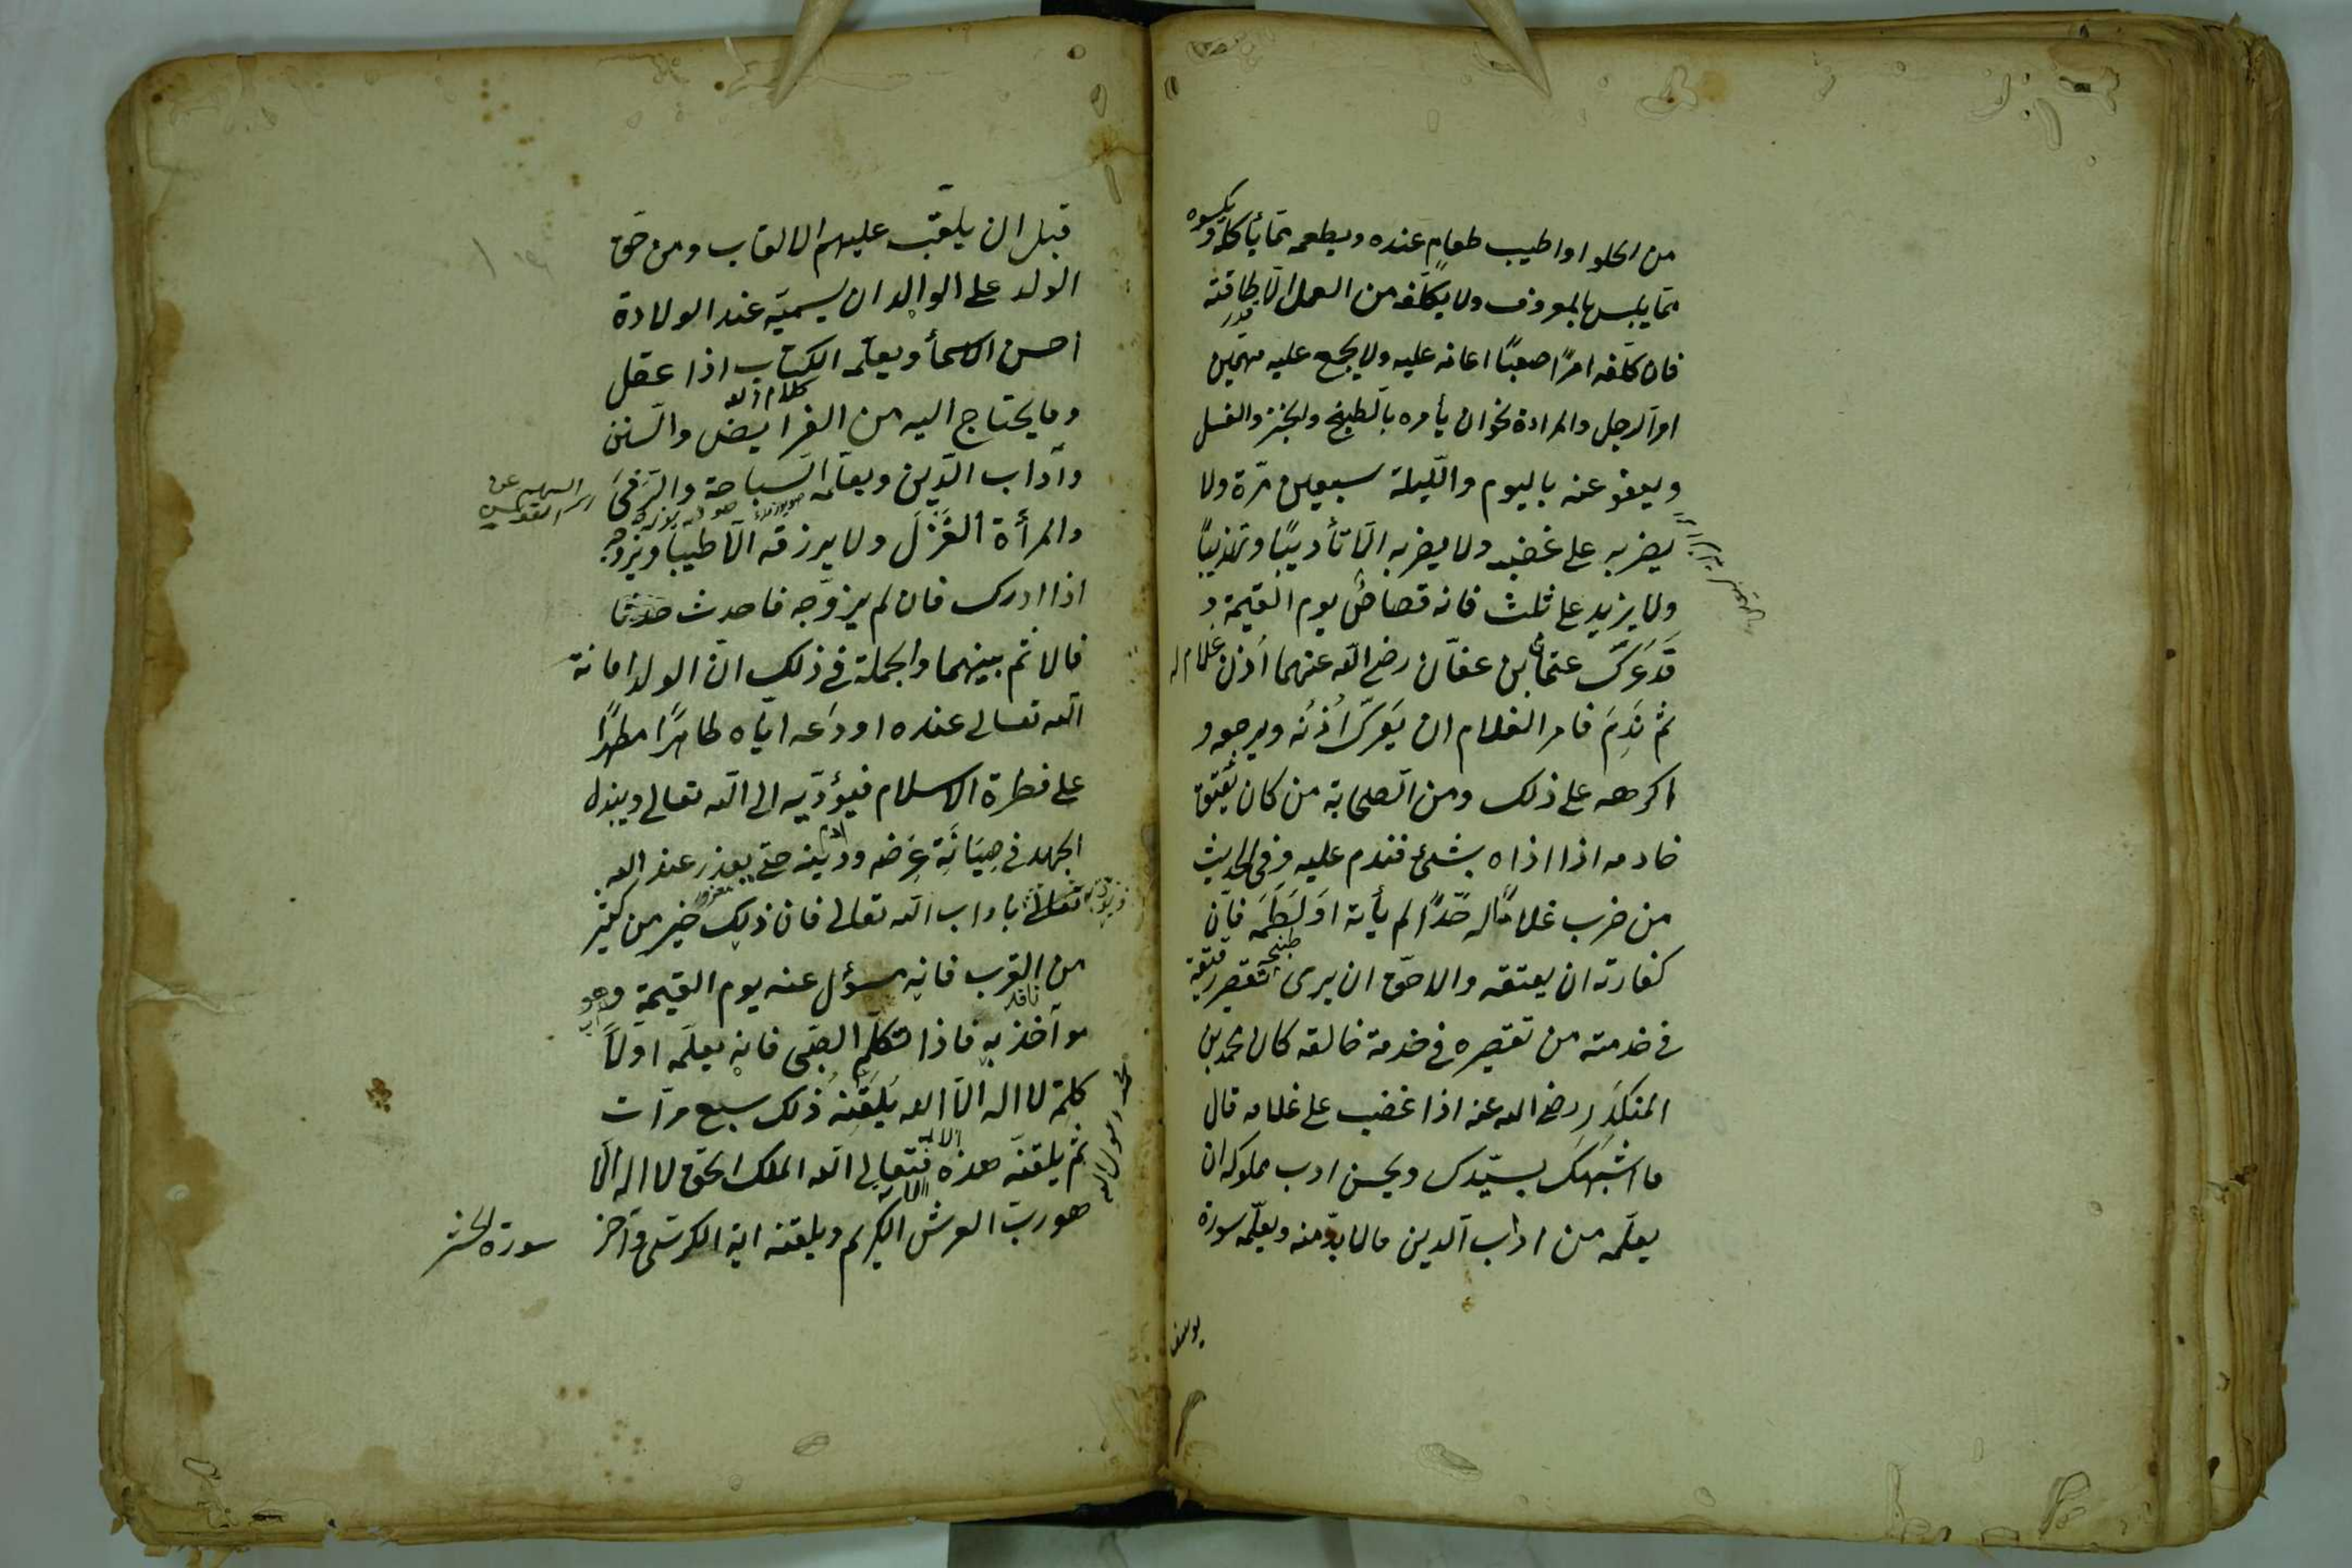 من الحلو او اطيب طعام عنده ويطعمه مما يأكله ويكسوه
مما يلبس بالمعروف ولا يكلفه من العمل الا طاقته
قدر
فان كلفه امرًا صعبًا اعانه عليه ولا يجمع عليه مهمّين
او الرجل والمرادة نحو ان يأمره بالطبخ والخبز والغسل
ويعفو عنه باليوم والليلة سبعين مرّة ولا
يضربه على غضب ولا يضربه الا تأديبًا وتهذيبًا
ولا يزيد على ثلث فانه قصاص يوم القيمة و
قد عَرَكَ عثمان بن عفّان رضى الله عنهما اذن غلام له
ثم نَدِمَ فامر الغلام ان يَعْرك اُذُنَه ويرجعه و
اكرهه على ذلك ومن الصحابة من كان يُعْتِق
خادمه اذا اذاه بشئ فندم عليه وفى الحديث
من ضرب غلامًا له حَدًّا لم يأته او لَطَمَه فانّ
كفارته ان يعتقه والاحق ان يرى تقصير رقيقه
فى خدمته من تقصيره فى خدمة خالقه كان محمد بن
المنكدر رضى الله عنه اذا غضب على غلامه قال
ما اشبهك بسيّدك ويحسن ادب مملوكه ان
يعلّمه من اداب الدين ما لا بدّ منه ويعلّمه سورة
يوسف
قبل ان يلقّب عليهم الالقاب ومن حق
الولد على الوالد ان يسميّه عند الولادة
احسن الاسمأ ويعلّمه الكتاب اذا عقل
كلام الله
وما يحتاج اليه من الفرايض والسّنن
وآداب الدّين ويعلّمه السّباحة والرّمى
والمرأة الغَزْلَ ولا يرزقه الّا طيبا ويزوّجه
اذا ادرك فان لم يزوّجه فاحدث حدثا
فالاثم بينهما والجملة فى ذلك انّ الولد امانة
الله تعالى عنده اودعه ايّاه طاهرًا مطهرًا
على فطرة الاسلام فيؤدّيه الى الله تعالى ويبذل
الجهد فى صِيَانَةِ عِرْضه ودينه حتى يعذر عند الله
تعالى باداب الله تعالى فان ذلك خير من كثير
من القرب فانه مسؤل عنه يوم القيمة وهو
مؤآخذ به فاذا تكلّم الصّبى فانه يعلّمه اولًا
كلمة لا اله الّا الله يُلَقِّنُه ذلك سبع مرّات
محمد رسول الله
ثم يلقنّه هذه الاية فتعالى الله الملك الحق لا اله الّا
هو ربّ العرش الكريم ويلقنه اية الكرسى وآخر
سورة الحشر